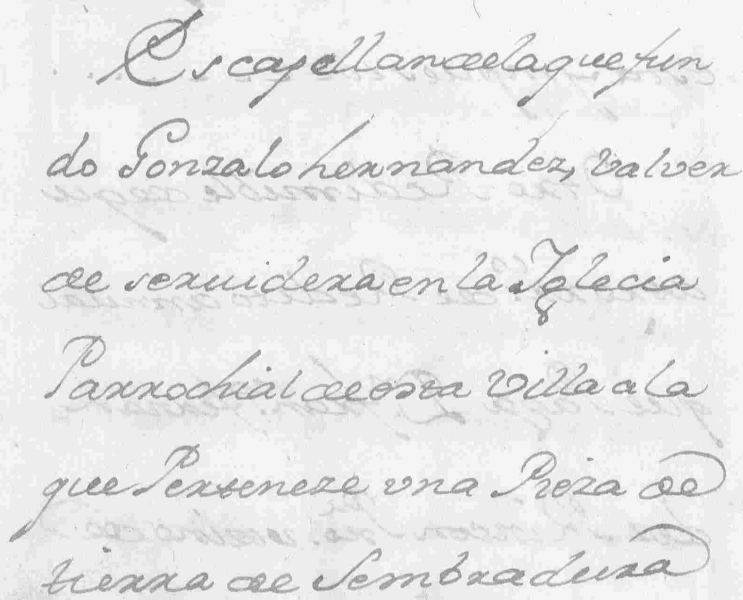 Es capellan de la que fun
do Gonzalo hernandez, Valver
de seruidera en la Iglecia
Parrochial de esta Villa a la
que Perteneze vna Pieza de
tierra de Sembradura